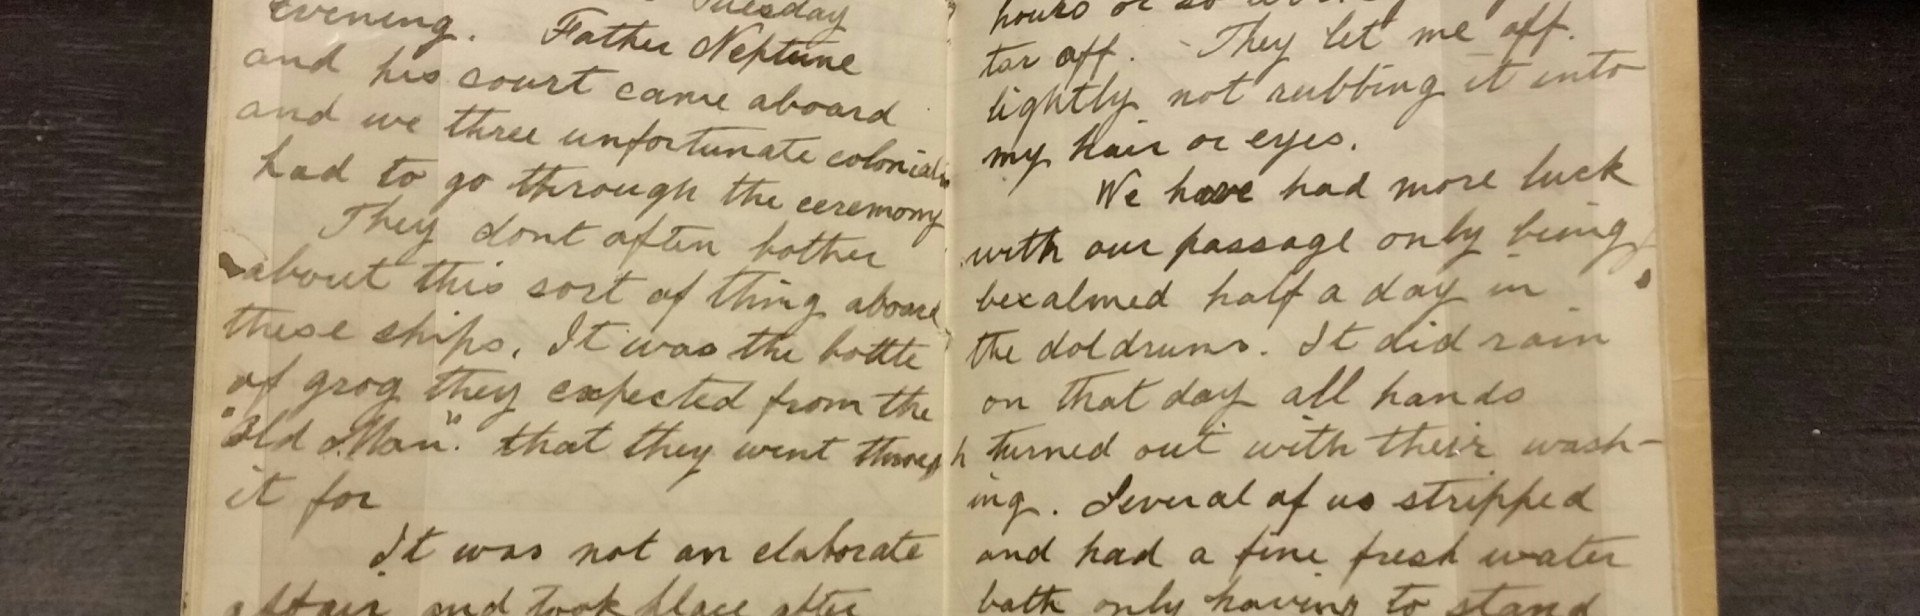 Tuesday
evening. Father Neptune
and his court came aboard
and we three unfortunate colonials
had to go through the ceremony
They dont often bother
about this sort of thing aboard
these ships. It was the bottle
of grog they expected from the
"Old Man". that they went through
it for
It was not an elaborate
affair and took place after
hours or so
tar off. They let me off
lightly not rubbing it into
my hair or eyes.
We have had more luck
with our passage only being
becalmed half a day in
the doldrums. It did rain
on that day all hands
turned out with their wash-
ing. Several of us stripped
and had a fine fresh water
bath only having to stand